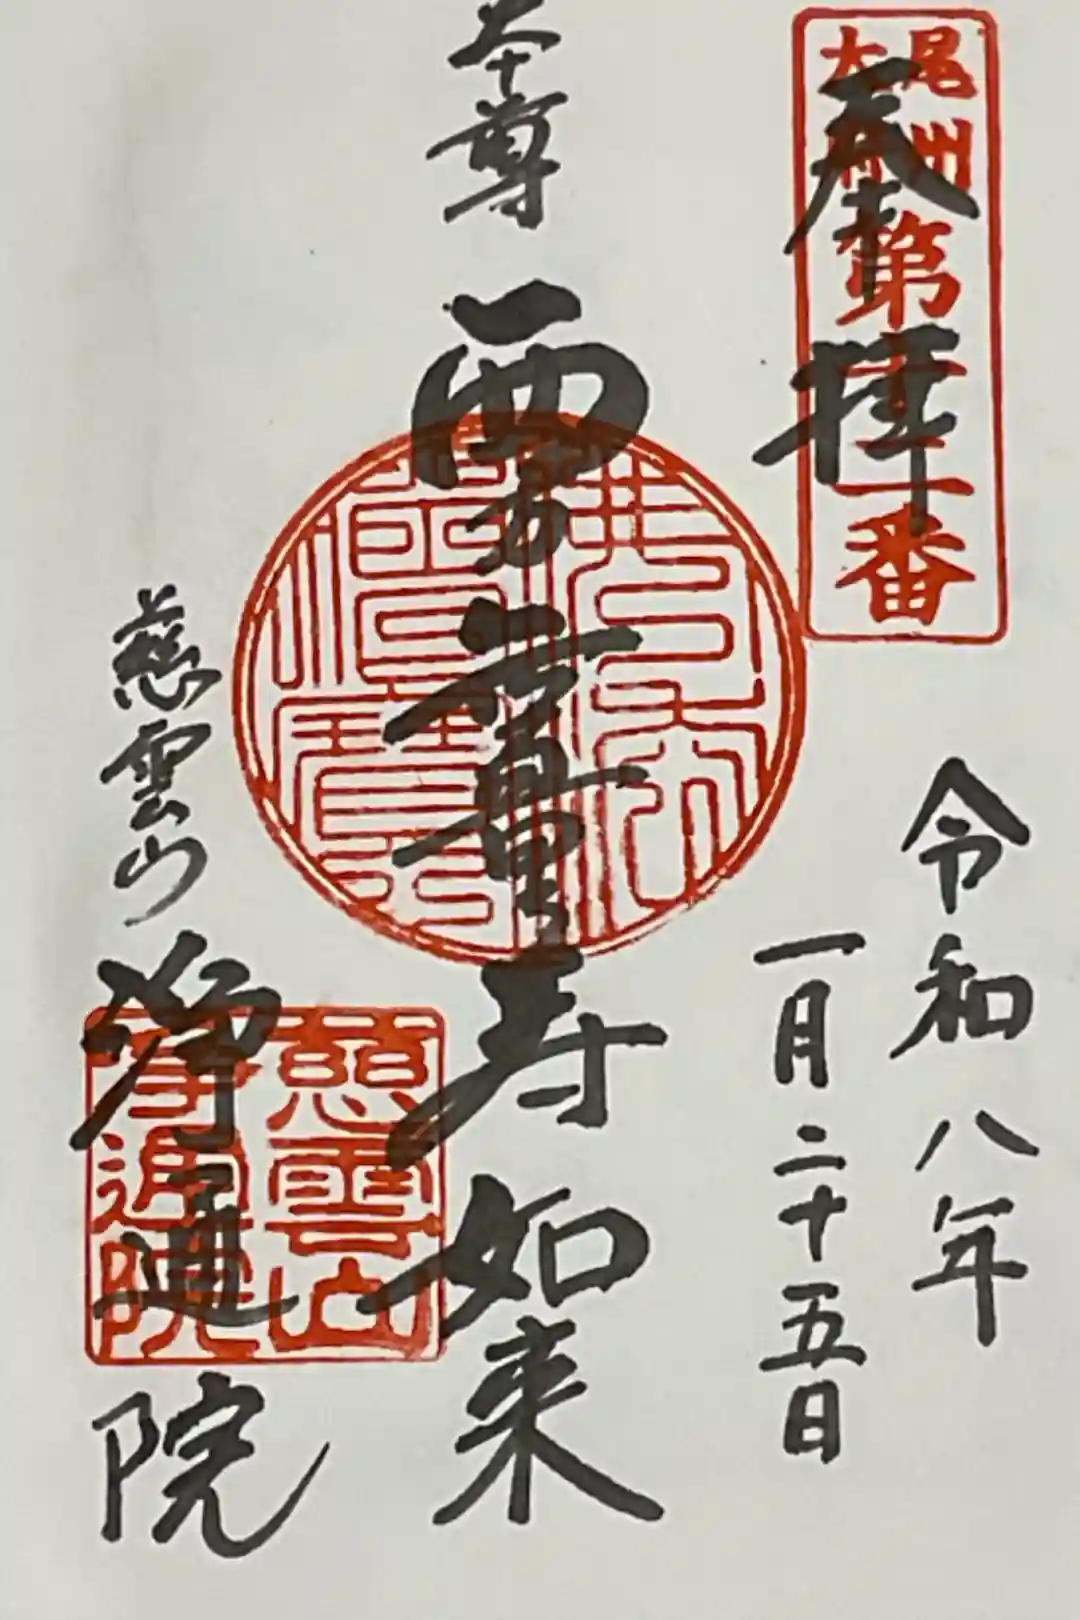 尾州
第十二番
奉拝
令和八年
一月二十五日
本尊
西方無量寿如来
慈雲山
浄通院
慈雲山
浄通院